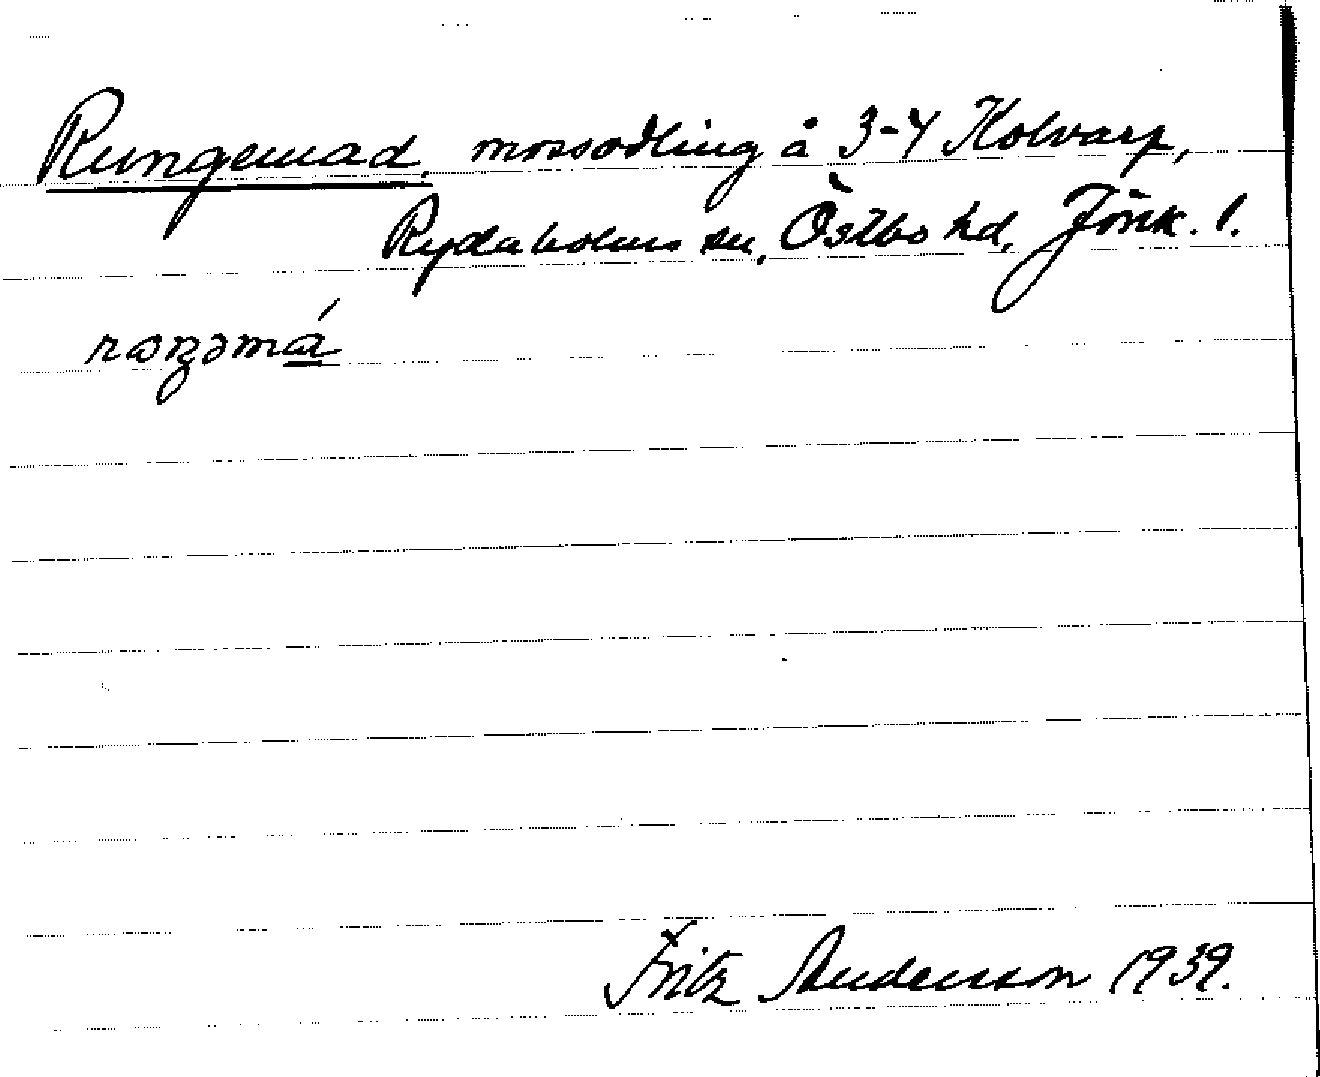 Rungemad, mossodling å 3-4 Kolvarp,
Rydaholms sn, Östbo hd, Jönk. l.
rɷŋəmá
Fritz Andersson 1939.